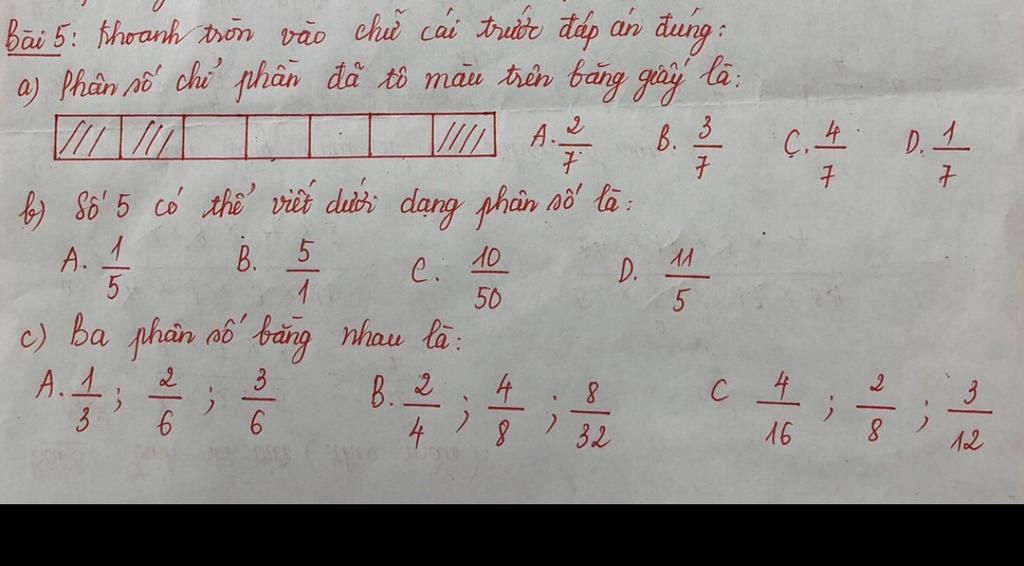 Bài 5: Khoanh tròn vào chữ cái trước đáp án đúng:
a) Phân số chỉ phần đã tô màu trên băng giấy là:
A. 2/7 B. 3/7 C. 4/7 D. 1/7
b) Số 5 có thể viết dưới dạng phân số là:
A. 1/5 B. 5/1 C. 10/50 D. 11/5
c) Ba phân số bằng nhau là:
A. 1/3 ; 2/6 ; 3/6 B. 2/4 ; 4/8 ; 8/32 C 4/16 ; 2/8 ; 3/12